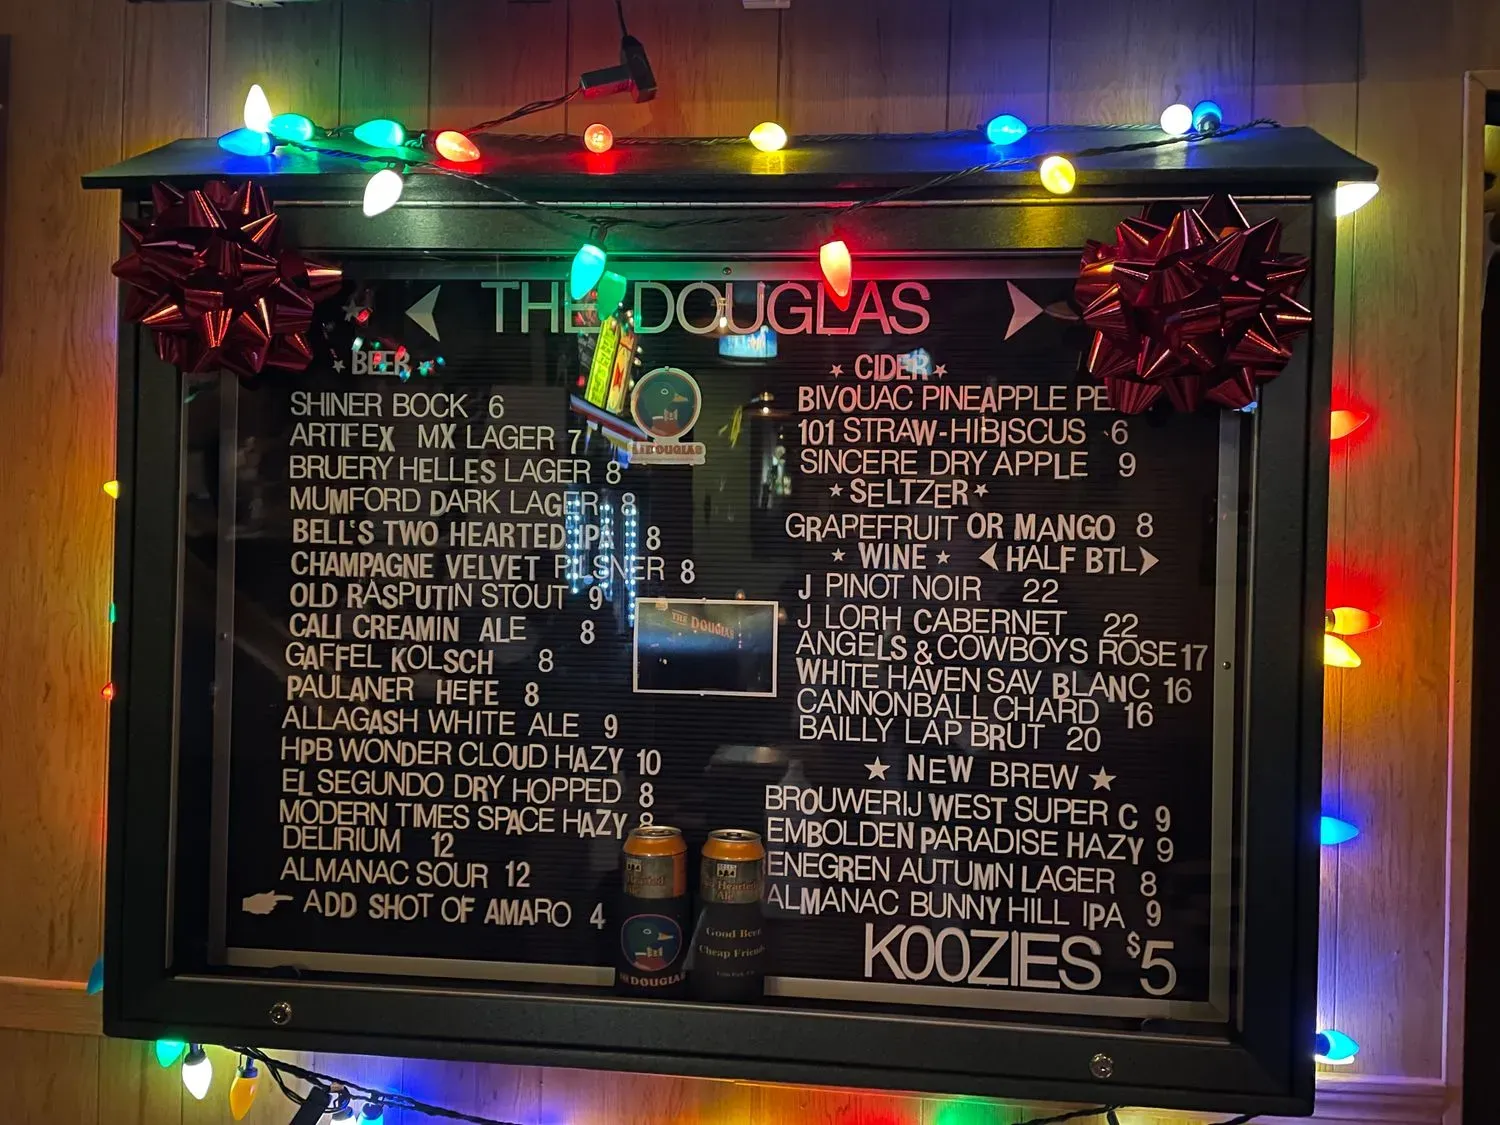 THE DOUGLAS
BEER
SHINER BOCK 6
ARTIFEX MX LAGER 7
BRUERY HELLES LAGER 8
MUMFORD DARK LAGER 8
BELL'S TWO HEARTED IPA 8
CHAMPAGNE VELVET PILSNER 8
OLD RASPUTIN STOUT 9
CALI CREAMIN ALE 8
GAFFEL KOLSCH 8
PAULANER HEFE 8
ALLAGASH WHITE ALE 9
HPB WONDER CLOUD HAZY 10
EL SEGUNDO DRY HOPPED 8
MODERN TIMES SPACE HAZY 8
DELIRIUM 12
ALMANAC SOUR 12
ADD SHOT OF AMARO 4
THE DOUGLAS
THE DOUGLAS
CIDER
BIVOUAC PINEAPPLE
101 STRAW-HIBISCUS 6
SINCERE DRY APPLE 9
SELTZER
GRAPEFRUIT OR MANGO 8
WINE HALF BTL
J PINOT NOIR 22
J LORH CABERNET 22
ANGELS & COWBOYS ROSE 17
WHITE HAVEN SAV BLANC 16
CANNONBALL CHARD 16
BAILLY LAP BRUT 20
NEW BREW
BROUWERIJ WEST SUPER C 9
EMBOLDEN PARADISE HAZY 9
ENEGREN AUTUMN LAGER 8
ALMANAC BUNNY HILL IPA 9
KOOZIES $5
Hearted
Ale
DOUGLAS
Hearted
Ale
Good Beer
Cheap Friends